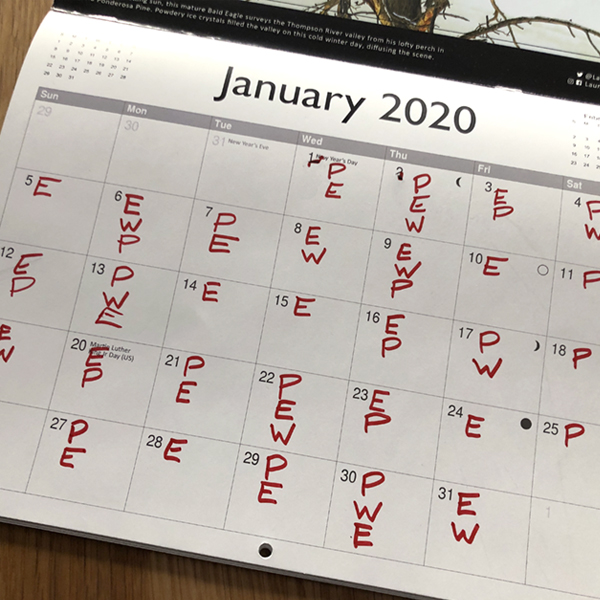 ng sun, this mature Bald Eagle surveys the Thompson River valley from his lofty perch in
Ponderosa Pine. Powdery ice crystals filled the valley on this cold winter day, diffusing the scene.
@La
Laur
January 2020
Sun Mon Tue Wed Thu Fri Sat
29
30
31 New Year's Eve
1 New Year's Day
P
E
2
P
E
W
3
E
P
4
P
W
5
E
6
E
W
P
7
P
E
8
E
W
9
E
W
P
10
E
11
P
12
E
P
13
P
W
E
14
E
15
E
16
E
P
17
P
W
18
P
E
W
20 Martin Luther
King Jr Day (US)
E
P
21
P
E
22
P
E
W
23
E
P
24
E
25
P
27
P
E
28
E
29
P
E
30
P
W
E
31
E
W
1